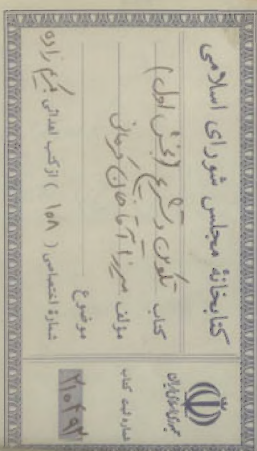 کتابخانهٔ مجلس شورای اسلامی
کتاب تکوین و تشریع (بخش اول)
مؤلف میرزا آقا خان کرمانی
موضوع
شمارهٔ اختصاصی ( ۱۵۸ ) از کتب اهدائی
جمهوری اسلامی ایران
شماره ثبت کتاب
۲۰۴۹۲